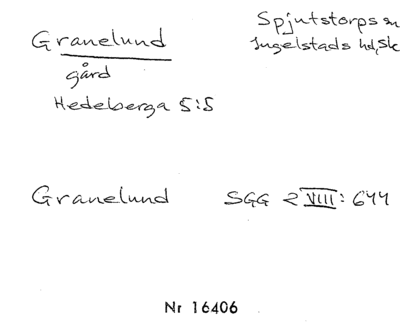 Granelund
Spjutstorps sn
Ingelstads hd, Sk
gård
Hedeberga 5:5
Granelund SGG 2 VIII: 644
Nr 16406